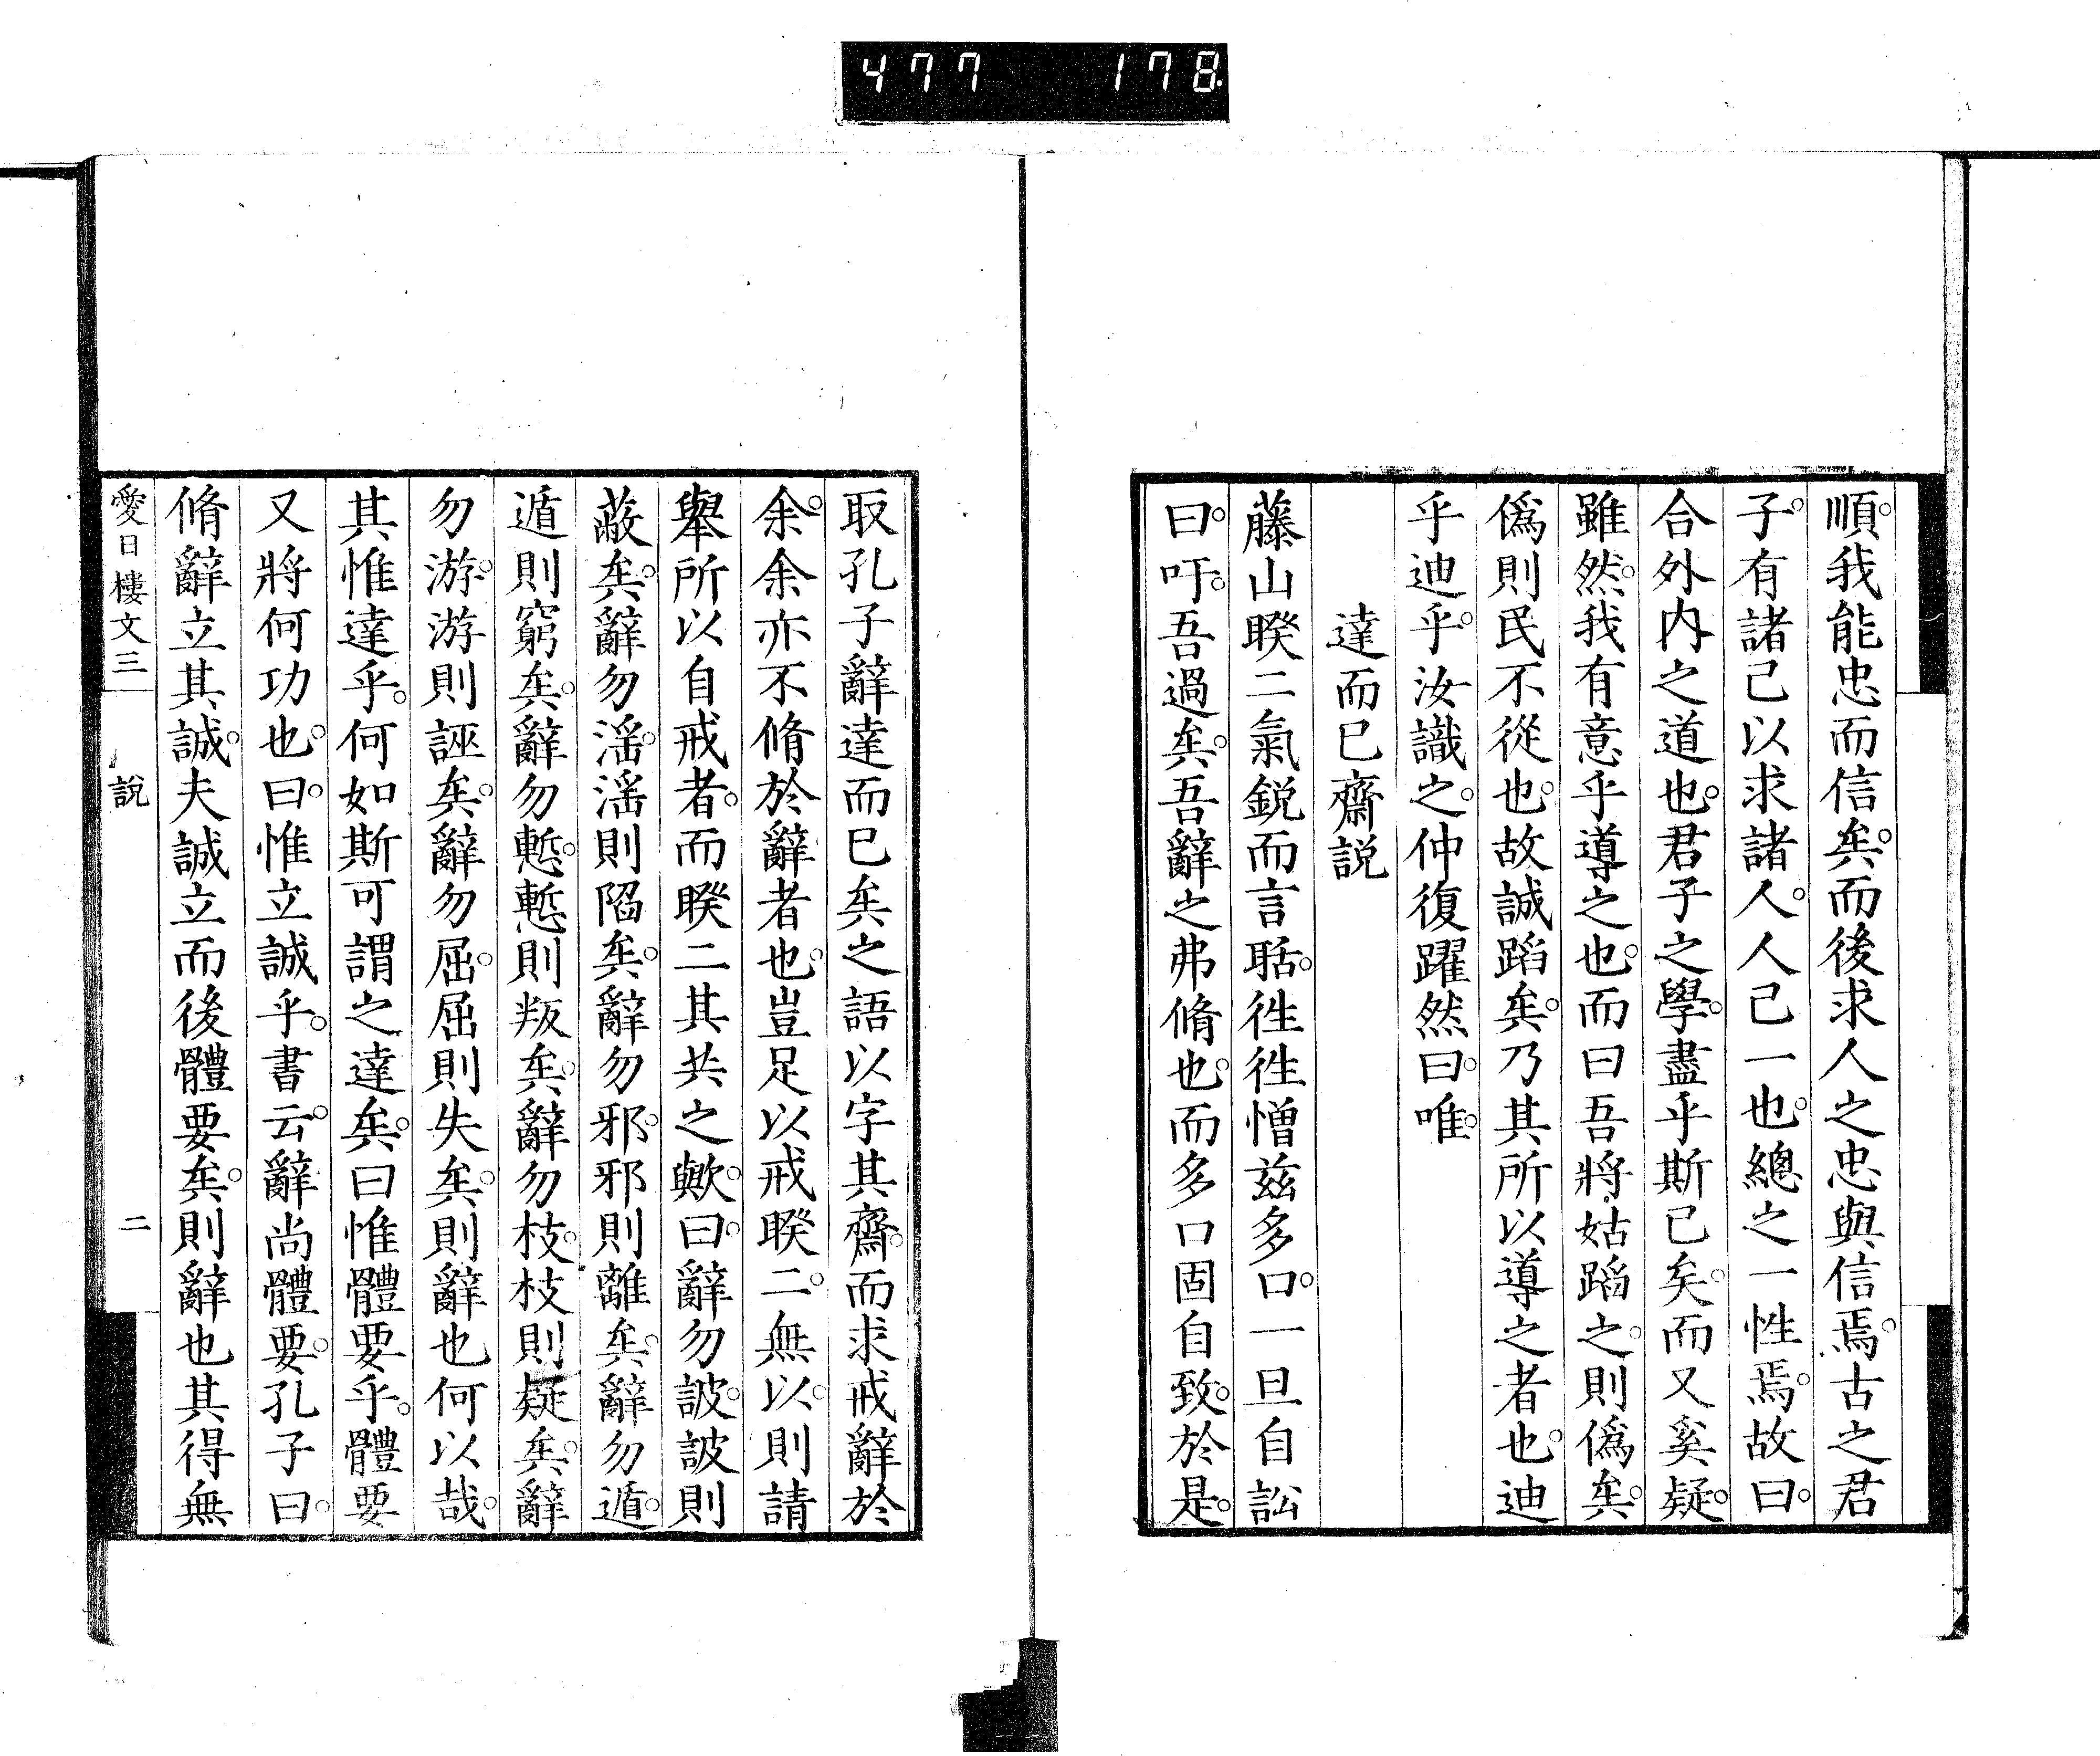 477 178
順。我能忠而信矣。而後求人之忠與信焉。古之君
子。有諸己以求諸人。人己一也。總之一性焉。故曰。
合外内之道也。君子之學。盡乎斯已矣。而又奚疑。
雖然。我有意乎導之也。而曰吾將姑蹈之。則僞矣。
僞則民不從也。故誠蹈矣。乃其所以導之者也。迪
乎迪乎。汝識之。仲復躍然曰。唯。
達而已齋説
藤山睽二氣鋭而言聒。徃徃憎茲多口。一旦自訟
曰。吁。吾過矣。吾辭之弗脩也。而多口固自致。於是。
取孔子辭達而已矣之語以字其齋。而求戒辭於
余。余亦不脩於辭者也。豈足以戒睽二。無以。則請
擧所以自戒者。而睽二其共之歟。曰。辭勿詖。詖則
蔽矣。辭勿滛。滛則陷矣。辭勿邪。邪則離矣。辭勿遁。
遁則窮矣。辭勿慙。慙則叛矣。辭勿枝。枝則疑矣。辭
勿游。游則誣矣。辭勿屈。屈則失矣。則辭也何以哉。
其惟達乎。何如斯可謂之達矣。曰惟體要乎。體要
又將何功也。曰。惟立誠乎。書云。辭尚體要。孔子曰。
脩辭立其誠。夫誠立而後體要矣。則辭也其得無
愛日樓文三 説 二